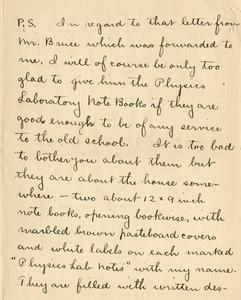 P.S. In regard to that letter from
Mr. Bruce which was forwarded to
me, I will of course be only too
glad to give him the Physics
Laboratory Note Books if they are
good enough to be of any service
to the old school. It is too bad
to bother you about them but
they are about the house some-
where - two about 12 x 9 inch
note books, opening bookwise, with
marbled brown pasteboard covers
and white labels on each marked
"Physics Lab Notes" with my name.
They are filled with written des-